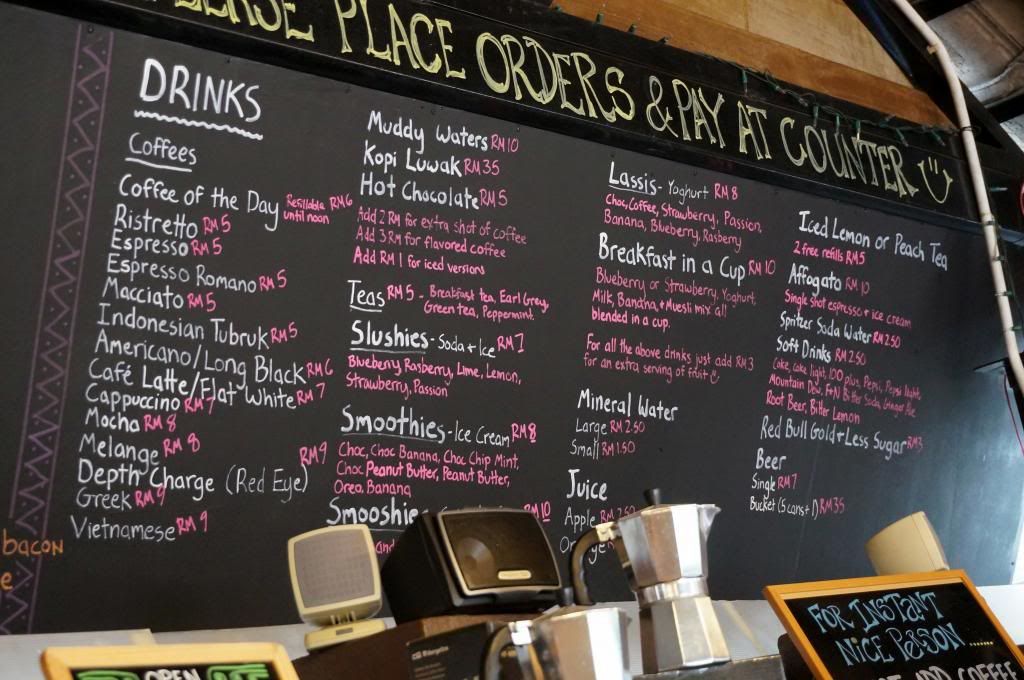 PLACE ORDERS & PAY AT COUNTER
DRINKS
Coffees
Coffee of the Day Refillable RM6
until noon
Ristretto RM5
Espresso RM5
Espresso Romano RM5
Macciato RM5
Indonesian Tubruk RM5
Americano/Long Black RM6
Café Latte/Flat White RM7
Cappuccino RM7
Mocha RM8
Melange RM8
Depth Charge (Red Eye) RM9
Greek RM9
Vietnamese RM9
Muddy Waters RM10
Kopi Luwak RM35
Hot Chocolate RM5
Add 2 RM for extra shot of coffee
Add 3 RM for flavored coffee
Add RM 1 for iced versions
Teas RM5 - Breakfast tea, Earl Grey,
Green tea, Peppermint
Slushies - Soda + Ice RM7
Blueberry, Rasberry, Lime, Lemon,
Strawberry, Passion
Smoothies - Ice Cream RM8
Choc, Choc Banana, Choc Chip Mint,
Choc Peanut Butter, Peanut Butter,
Oreo, Banana
Smooshie
RM10
Lassis - Yoghurt RM8
Choc, Coffee, Strawberry, Passion,
Banana, Blueberry, Rasberry
Breakfast in a Cup RM10
Blueberry or Strawberry, Yoghurt,
Milk, Banana, + Muesli mix all
blended in a cup.
For all the above drinks just add RM3
for an extra serving of fruit
Mineral Water
Large RM2.50
Small RM1.50
Juice
Apple
Iced Lemon or Peach Tea
2 free refills RM5
Affogato RM10
Single shot espresso + ice cream
Spritzer Soda Water RM2.50
Soft Drinks RM2.50
Coke, coke light, 100 plus, Pepsi, Pepsi Light,
Mountain Dew, F+N Bitter Soda, Ginger Ale
Root Beer, Bitter Lemon
Red Bull Gold + Less Sugar RM3
Beer
Single RM7
Bucket (5 cans + 1) RM35
bacon
e
OPEN
FOR INSTANT
NICE PERSON.......
ADD COFFEE